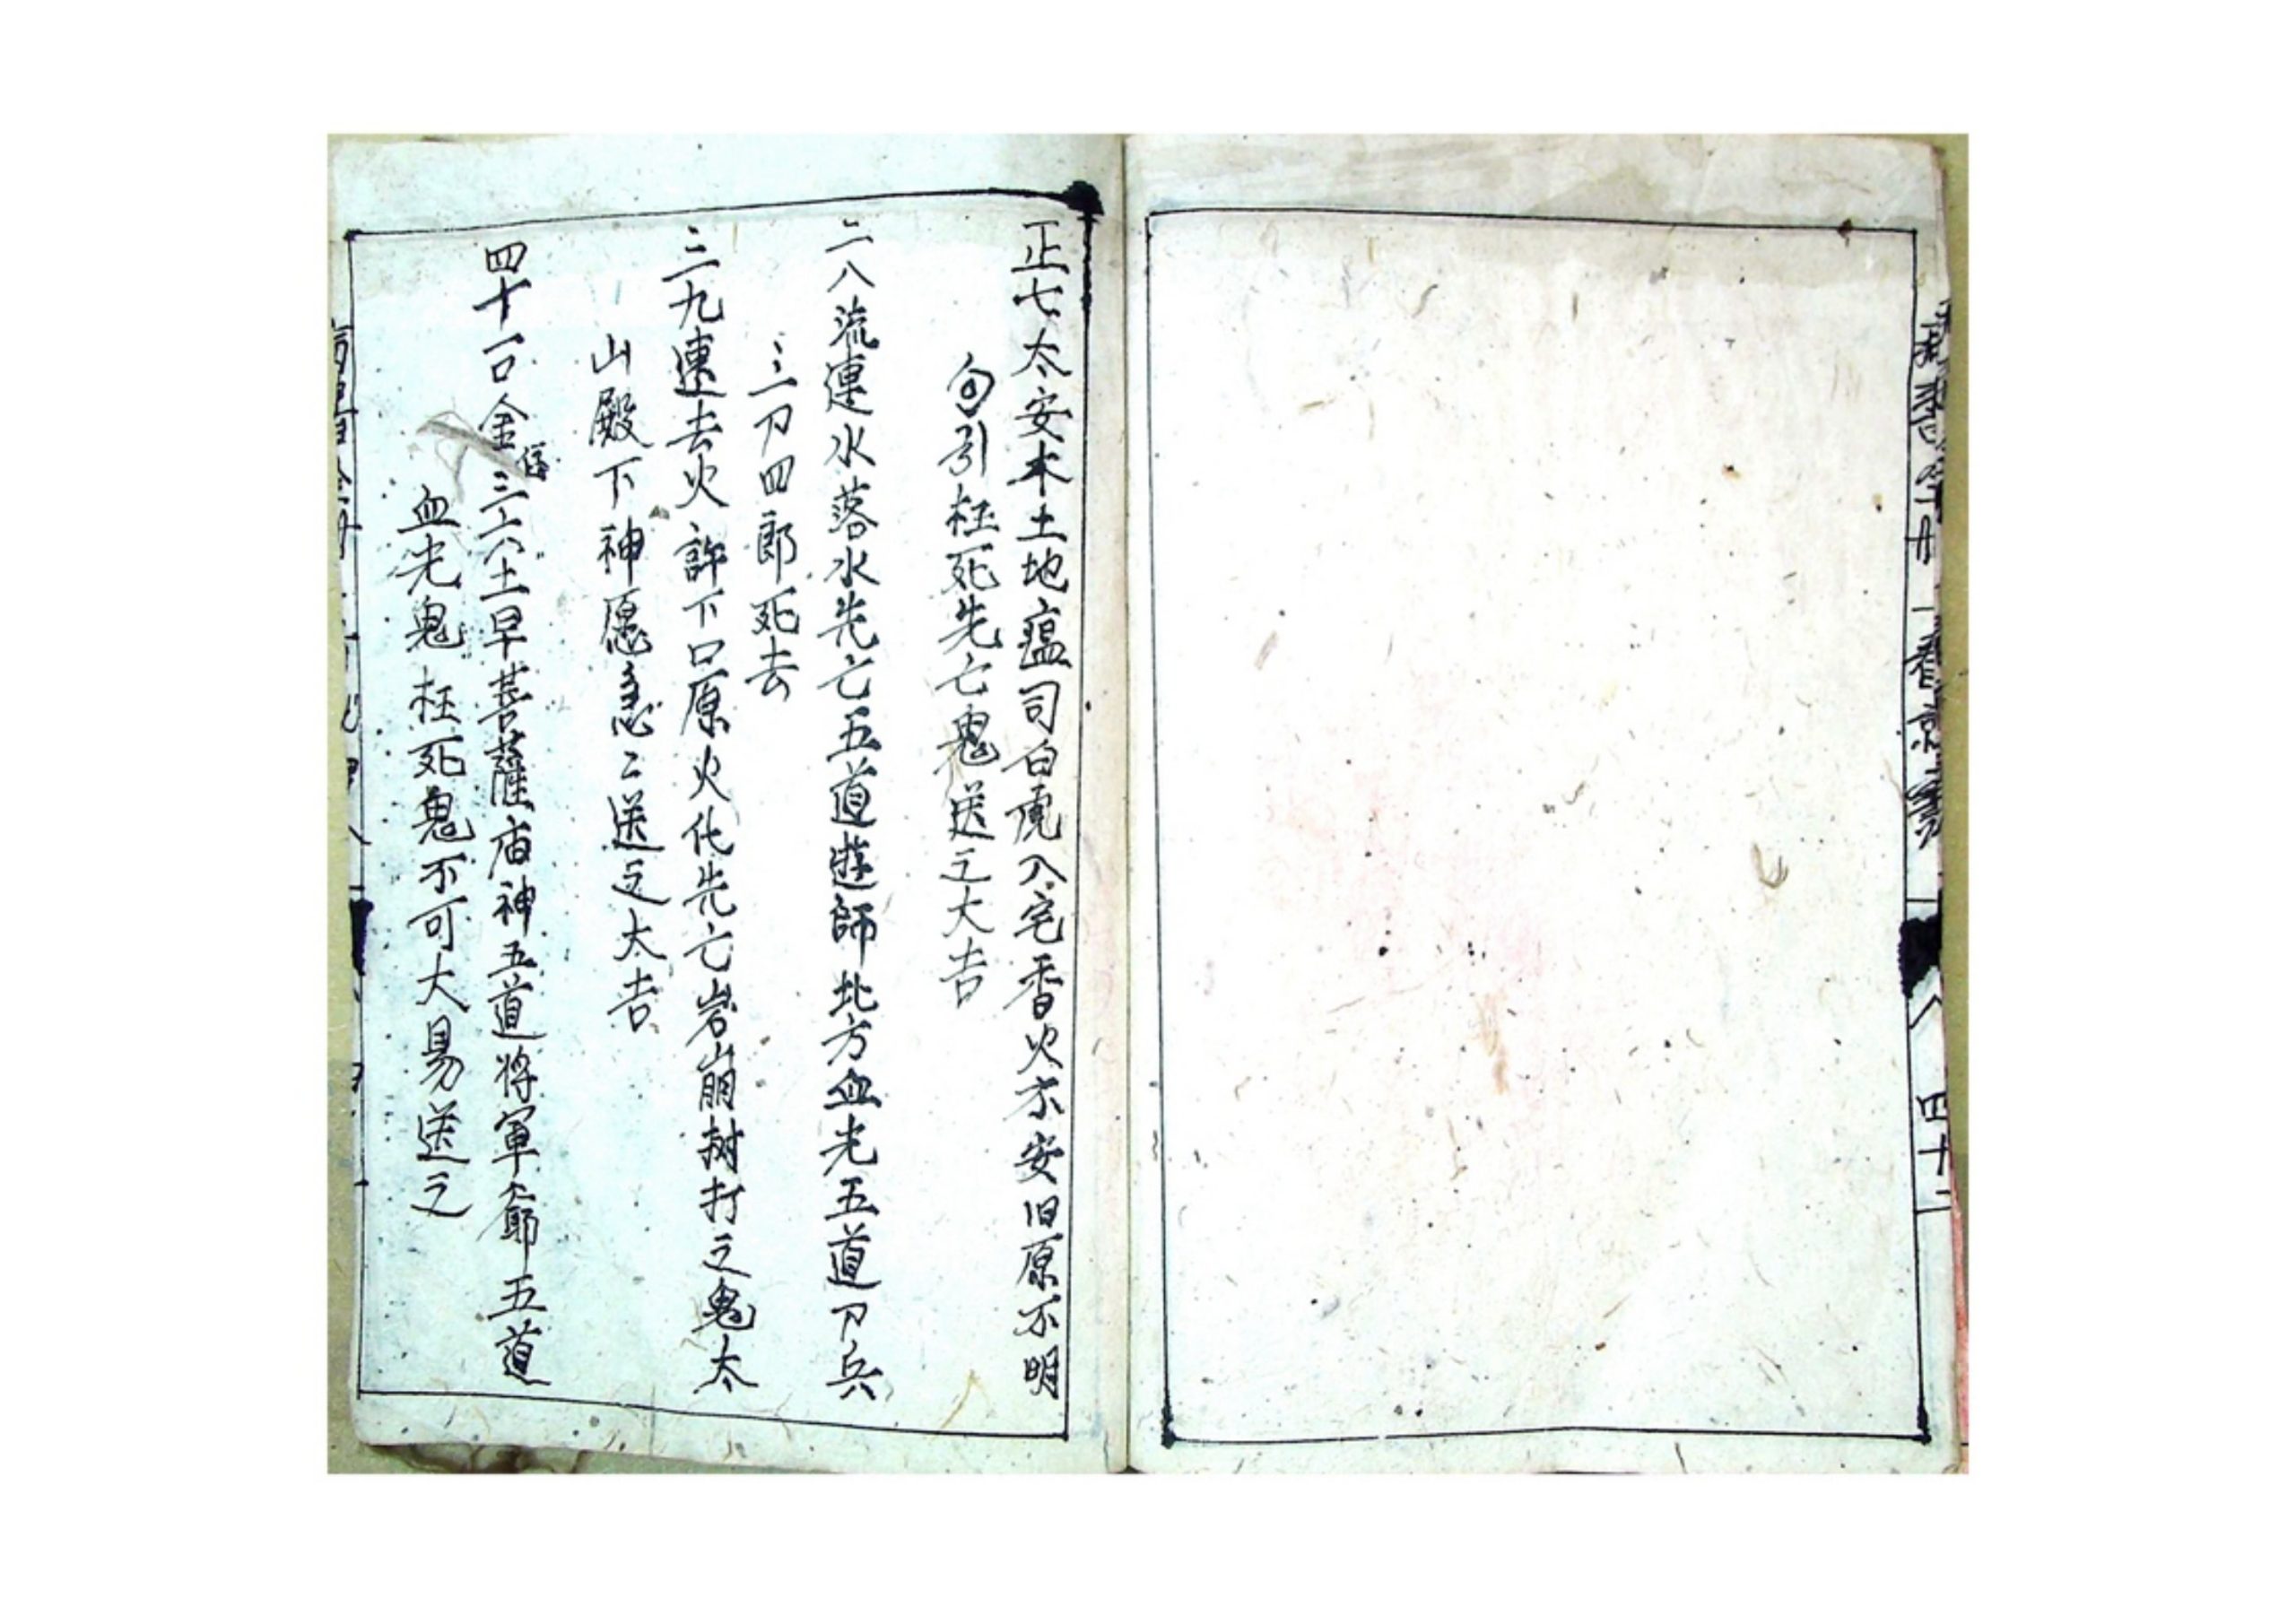 四十二
正七太安木土地瘟司白虎入宅香火不安旧原不明
勾引枉死先亡鬼送之大吉
二八流連水落水先亡五道遊師北方血光五道刀兵
三刀四郎死去
三九連去火許下口原火化先亡岩崩树打之鬼太
山殿下神愿急〻送之大吉
四十口金三六土早菩薩庙神五道将軍爺五道
血光鬼枉死鬼不可大易送之